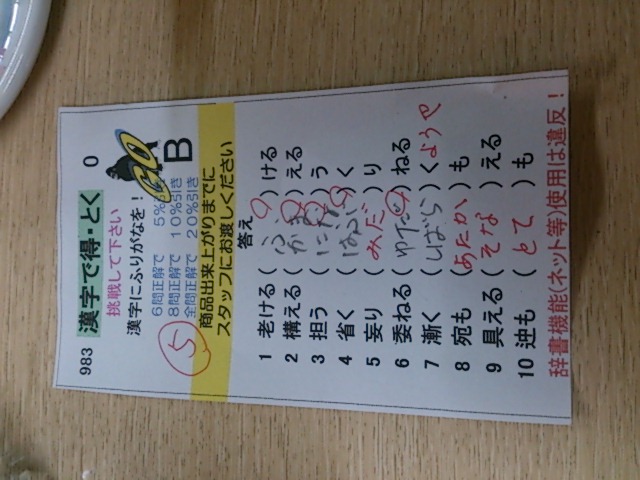 983 漢字で得・とく 0
挑戦して下さい
漢字にふりがなを！
6問正解で 5%
8問正解で 10%引き
全問正解で 20%引き
GO
B
5
商品出来上がりまでに
スタッフにお渡しください
答え
1 老ける ( ふ )ける
2 構える ( かま )える
3 担う ( にな )う
4 省く ( はぶ )く
5 妄り ( みだ )り
6 委ねる ( ゆだ )ねる
7 漸く ( しばら )く ようや
8 宛も ( あたか )も
9 具える ( そな )える
10 迚も ( とて )も
辞書機能(ネット等)使用は違反！